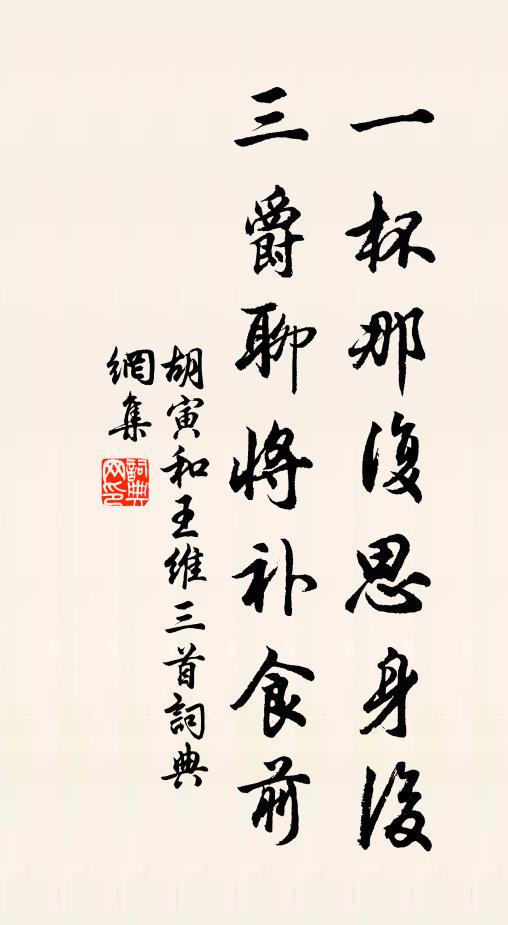 一杯那復思身後
三爵聊將补食前
胡寅和王維三首詞典
網集
詞典
网印